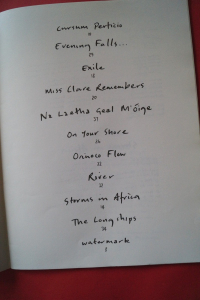 Cursum Perficio
Evening Falls...
Exile
18
Miss Clare Remembers
20
Na Laetha Geal M'óige
On Your Shore
Orinoco Flow
River
Storms in Africa
The Longships
watermark